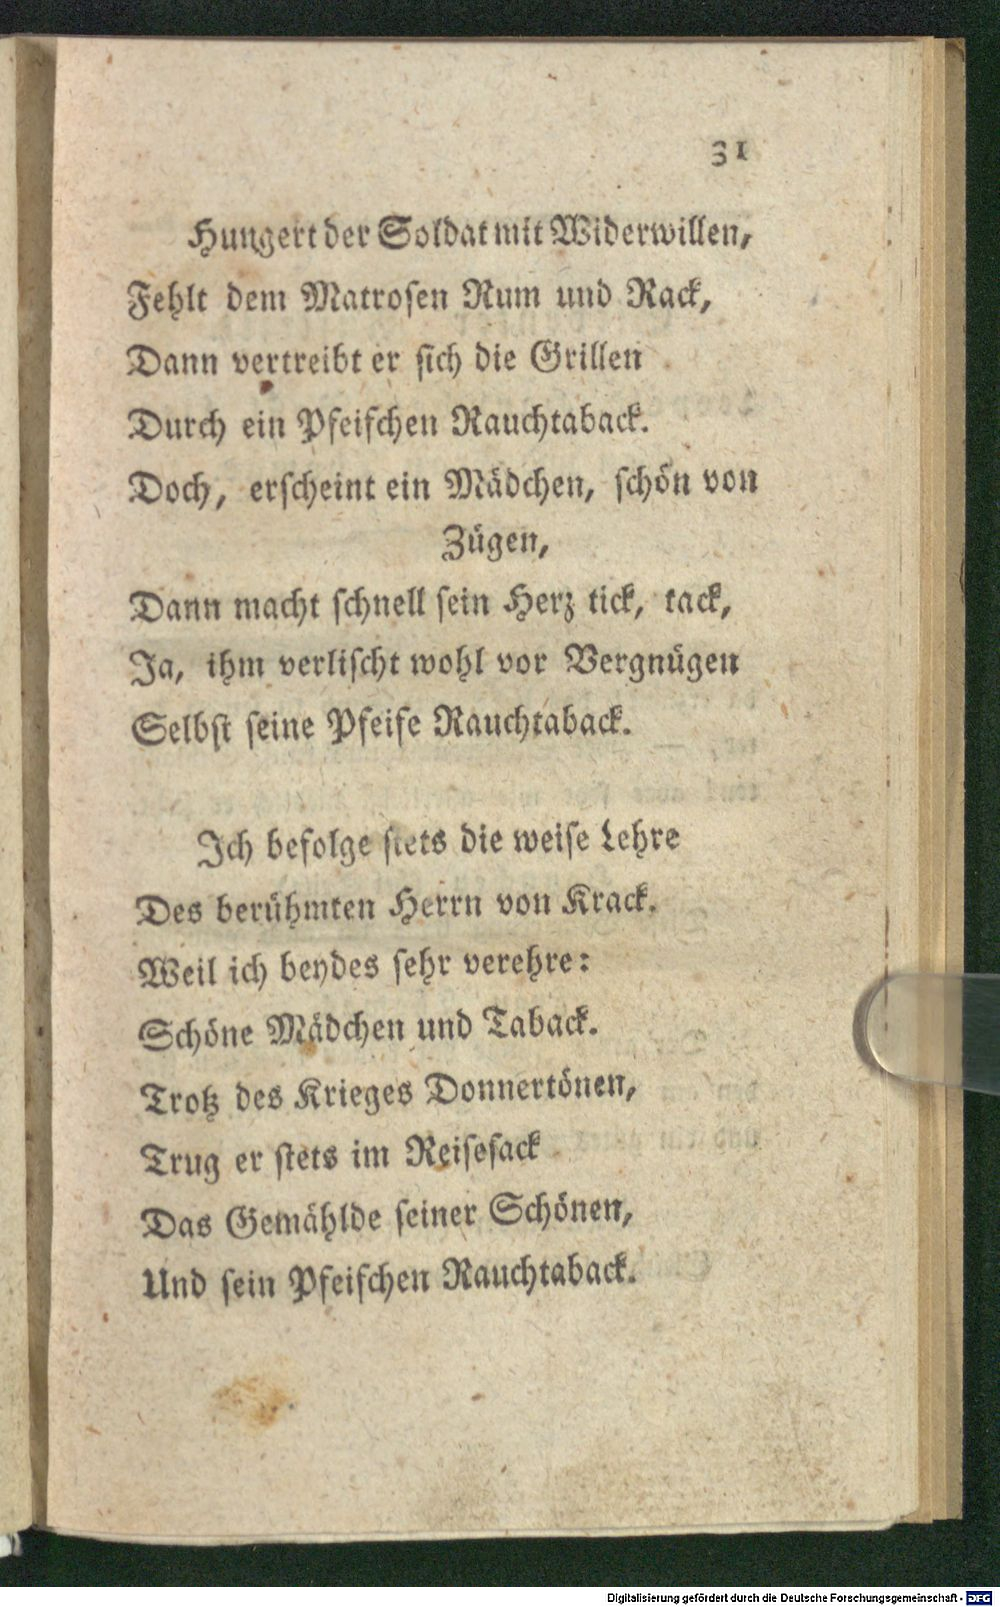 31
Hungert der Soldat mit Widerwillen,
Fehlt dem Matrosen Rum und Rack,
Dann vertreibt er sich die Grillen
Durch ein Pfeifchen Rauchtaback.
Doch, erscheint ein Mädchen, schön von
Zügen,
Dann macht schnell sein Herz tick, tack,
Ja, ihm verlischt wohl vor Vergnügen
Selbst seine Pfeife Rauchtaback.
Ich befolge stets die weise Lehre
Des berühmten Herrn von Krack.
Weil ich beydes sehr verehre:
Schöne Mädchen und Taback.
Trotz des Krieges Donnertönen,
Trug er stets im Reisesack
Das Gemählde seiner Schönen,
Und sein Pfeifchen Rauchtaback.
Digitalisierung gefördert durch die Deutsche Forschungsgemeinschaft - DFG